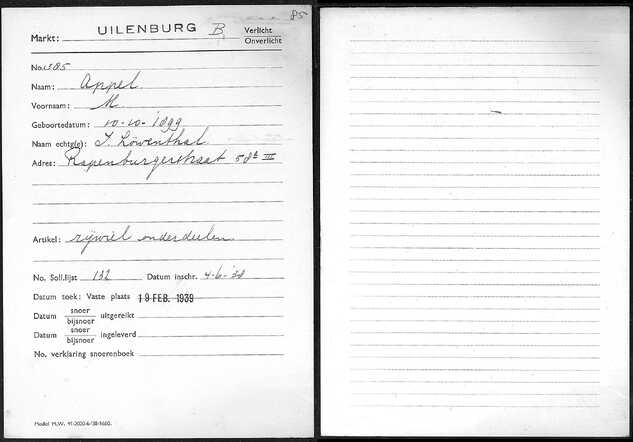 85
Markt: UILENBURG B. Verlicht
Onverlicht
No. 85
Naam: Appel
Voornaam: M
Geboortedatum: 10-10-1899
Naam echtg(e): J. Löwenthal
Adres: Rapenburgerstraat 58 h III
Artikel: rijwiel onderdeelen
No. Soll.lijst 132 Datum inschr. 4-6-'38
Datum toek: Vaste plaats 19 FEB. 1939
Datum snoer
bijsnoer uitgereikt
Datum snoer
bijsnoer ingeleverd
No. verklaring snoerenboek
Model M.W. 41-2000-6/38-1660.